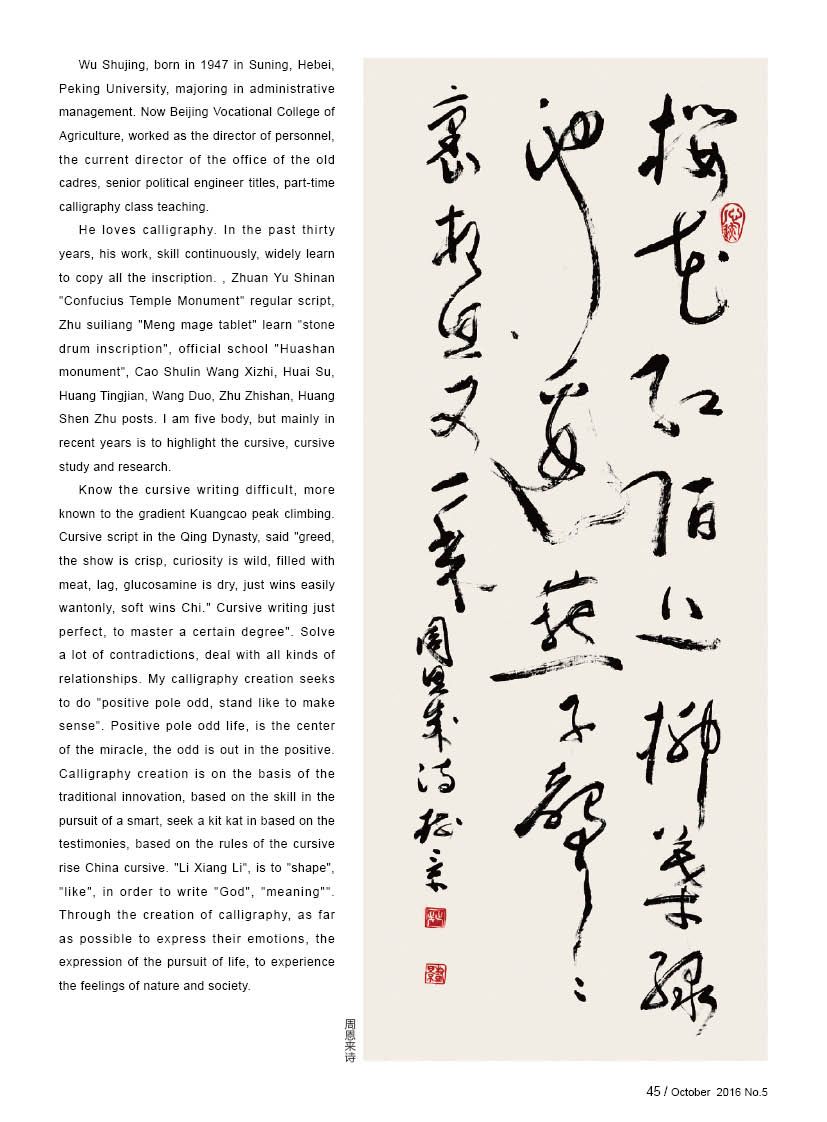 Wu Shujing, born in 1947 in Suning, Hebei,
Peking University, majoring in administrative
management. Now Beijing Vocational College of
Agriculture, worked as the director of personnel,
the current director of the office of the old
cadres, senior political engineer titles, part-time
calligraphy class teaching.
He loves calligraphy. In the past thirty
years, his work, skill continuously, widely learn
to copy all the inscription. , Zhuan Yu Shinan
"Confucius Temple Monument" regular script,
Zhu suiliang "Meng mage tablet" learn "stone
drum inscription", official school "Huashan
monument", Cao Shulin Wang Xizhi, Huai Su,
Huang Tingjian, Wang Duo, Zhu Zhishan, Huang
Shen Zhu posts. I am five body, but mainly in
recent years is to highlight the cursive, cursive
study and research.
Know the cursive writing difficult, more
known to the gradient Kuangcao peak climbing.
Cursive script in the Qing Dynasty, said "greed,
the show is crisp, curiosity is wild, filled with
meat, lag, glucosamine is dry, just wins easily
wantonly, soft wins Chi." Cursive writing just
perfect, to master a certain degree". Solve
a lot of contradictions, deal with all kinds of
relationships. My calligraphy creation seeks
to do "positive pole odd, stand like to make
sense". Positive pole odd life, is the center
of the miracle, the odd is out in the positive.
Calligraphy creation is on the basis of the
traditional innovation, based on the skill in the
pursuit of a smart, seek a kit kat in based on the
testimonies, based on the rules of the cursive
rise China cursive. "Li Xiang Li", is to "shape",
"like", in order to write "God", "meaning"".
Through the creation of calligraphy, as far
as possible to express their emotions, the
expression of the pursuit of life, to experience
the feelings of nature and society.
樱花红陌上柳叶绿
池边燕子声々
里相思又一年 周恩来诗
周恩来诗
45 / October 2016 No.5